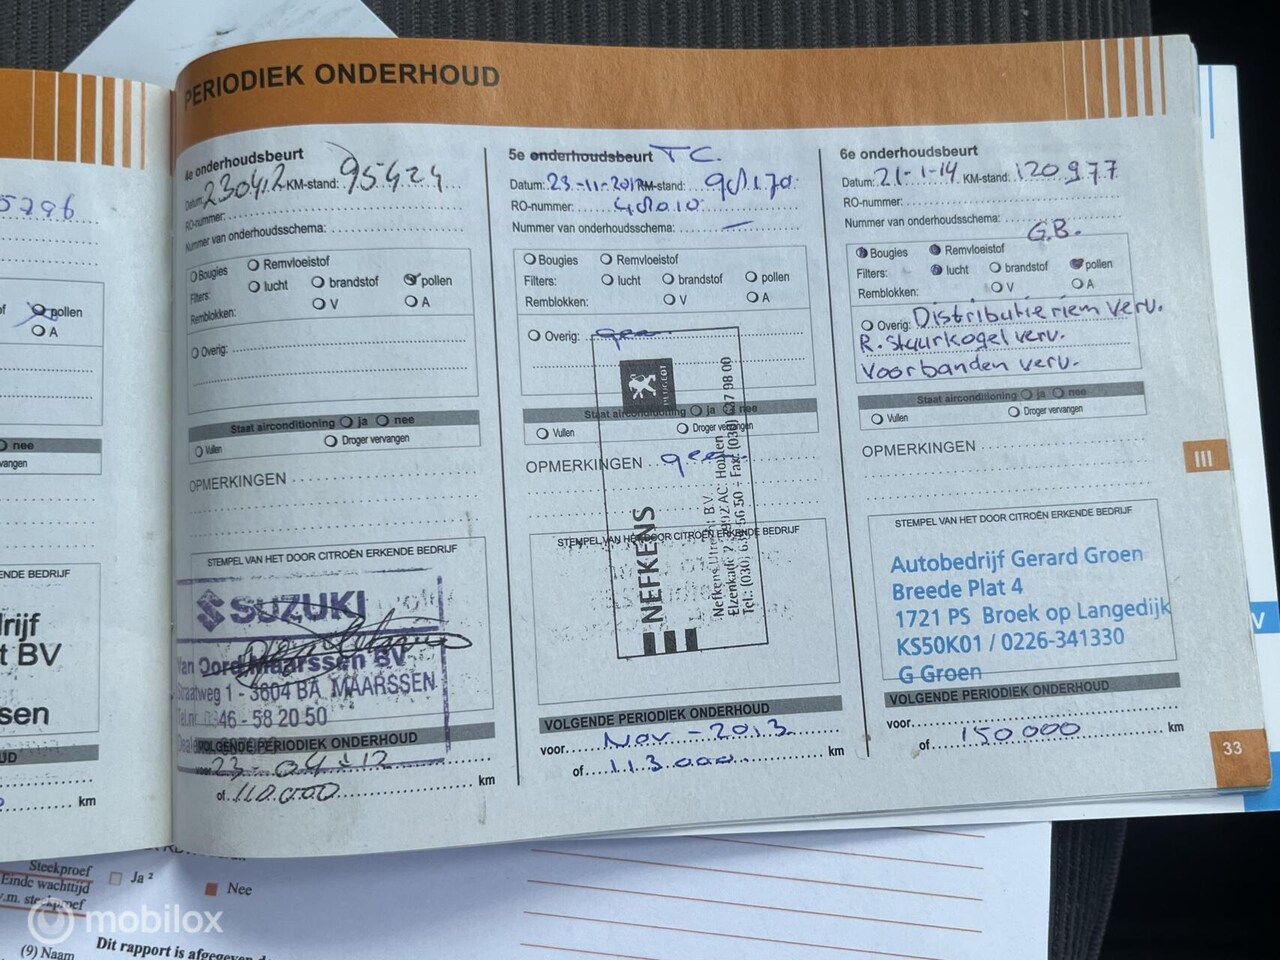 PERIODIEK ONDERHOUD
4e onderhoudsbeurt
Datum: 230412 KM-stand: 95424
RO-nummer:
Nummer van onderhoudsschema:
Bougies Remvloeistof
Filters: lucht brandstof pollen
Remblokken: V A
Overig:
Staat airconditioning ja nee
Vullen Droger vervangen
OPMERKINGEN
STEMPEL VAN HET DOOR CITROËN ERKENDE BEDRIJF
SUZUKI
Van Oord Maarssen BV
Straatweg 1 - 3604 BA MAARSSEN
Tel.nr. 0346 - 58 20 50
VOLGENDE PERIODIEK ONDERHOUD
voor 23-04-12
of 110.000 km
5e onderhoudsbeurt T.C.
Datum: 23-11-2012 KM-stand: 98170
RO-nummer: 48010
Nummer van onderhoudsschema: —
Bougies Remvloeistof
Filters: lucht brandstof pollen
Remblokken: V A
Overig: geen
PEUGEOT
Staat airconditioning ja nee
Vullen Droger vervangen
OPMERKINGEN geen
STEMPEL VAN HET DOOR CITROËN ERKENDE BEDRIJF
NEFKENS
Nefkens Utrecht B.V.
VOLGENDE PERIODIEK ONDERHOUD
voor Nov - 2013
of 113.000 km
6e onderhoudsbeurt
Datum: 21-1-14 KM-stand: 120977
RO-nummer:
Nummer van onderhoudsschema:
G.B.
Bougies Remvloeistof
Filters: lucht brandstof pollen
Remblokken: V A
Overig: Distributieriem verv.
R. Stuurkogel verv.
Voorbanden verv.
Staat airconditioning ja nee
Vullen Droger vervangen
OPMERKINGEN
STEMPEL VAN HET DOOR CITROËN ERKENDE BEDRIJF
Autobedrijf Gerard Groen
Breede Plat 4
1721 PS Broek op Langedijk
KS50K01 / 0226-341330
G Groen
VOLGENDE PERIODIEK ONDERHOUD
voor
of 150000 km
III
33
V
5796
pollen
A
nee
vangen
ENDE BEDRIJF
rijf
t BV
sen
UD
km
Steekproef Ja ² Nee
Einde wachttijd
v.m. steekproef
(9) Naam
Dit rapport is afgegeven
mobilox